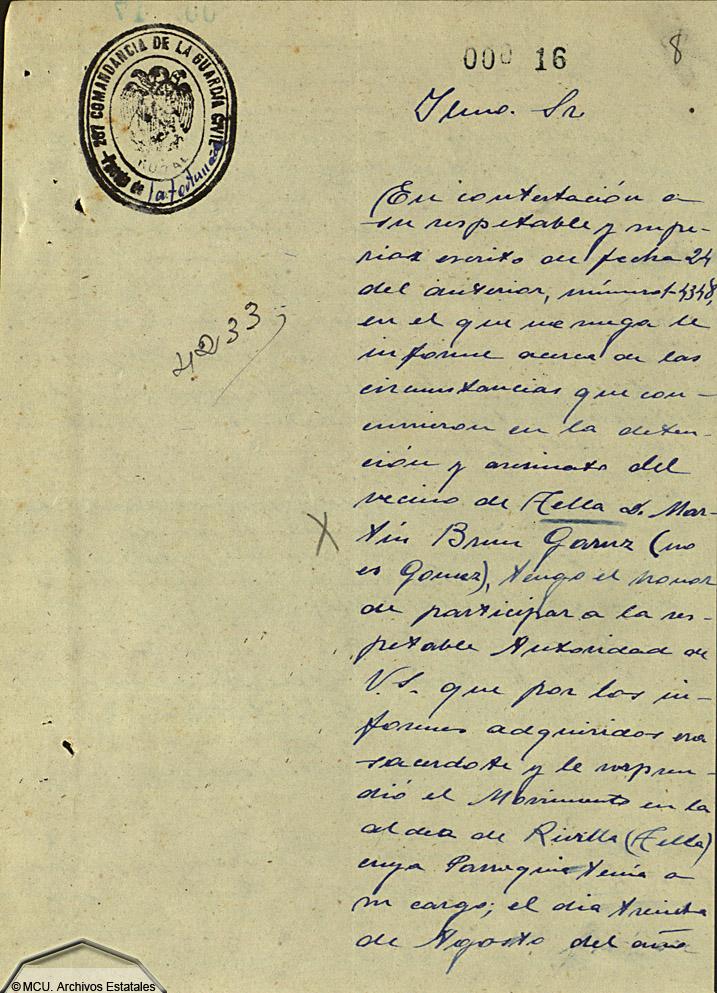 000 16
8
267 COMANDANCIA DE LA GUARDIA CIVIL
RURAL
Puesto de Lafortunada
Ilmo. Sr.
4233
En contestación a
su respetable y supe-
rior escrito de fecha 24
del anterior, número 4348,
en el que me ruega le
informe acerca de las
circunstancias que con-
currieron en la deten-
ción y asesinato del
vecino de Tella D. Mar-
X
tín Brun Garuz (no
es Gomez), tengo el honor
de participar a la res-
petable Autoridad de
V.S. que por los in-
formes adquiridos era
sacerdote y le sorpren-
dió el Movimiento en la
aldea de Rivilla (Tella)
cuya Parroquia tenía a
su cargo; el dia treinta
de Agosto del año
© MCU. Archivos Estatales